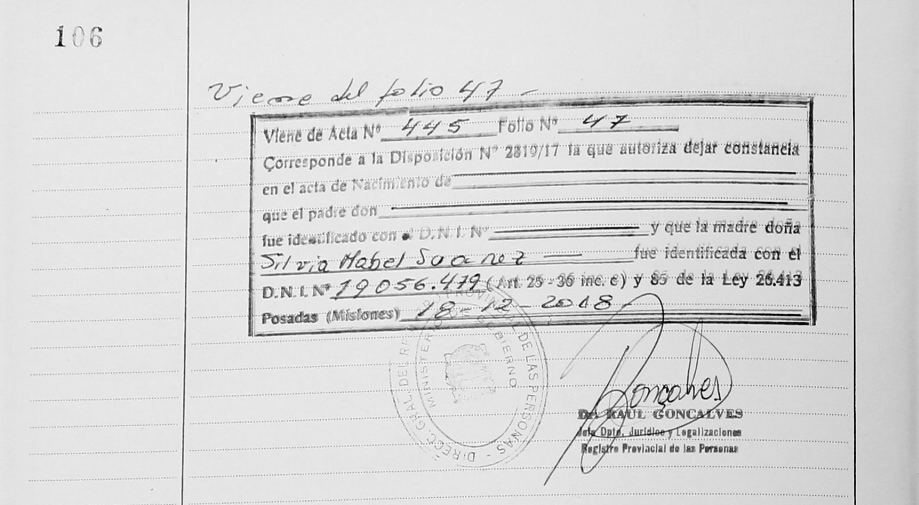 106
Viene del folio 47 -
Viene de Acta Nº 445 Folio Nº 47
Corresponde a la Disposición Nº 2819/17 la que autoriza dejar constancia
en el acta de Nacimiento de
que el padre don
fue identificado con D.N.I. Nº y que la madre doña
Silvia Mabel Suarez fue identificada con el
D.N.I. Nº 19056.479 (Art. 25 - 36 inc. c) y 85 de la Ley 26.413
Posadas (Misiones) 18-12-2018
DIREC. GRAL. DEL PROVINCIAL DE LAS PERSONAS
MINISTERIO GOBIERNO
Gonçalves
Dr. RAUL GONCALVES
Jefe Dpto. Jurídico y Legalizaciones
Registro Provincial de las Personas